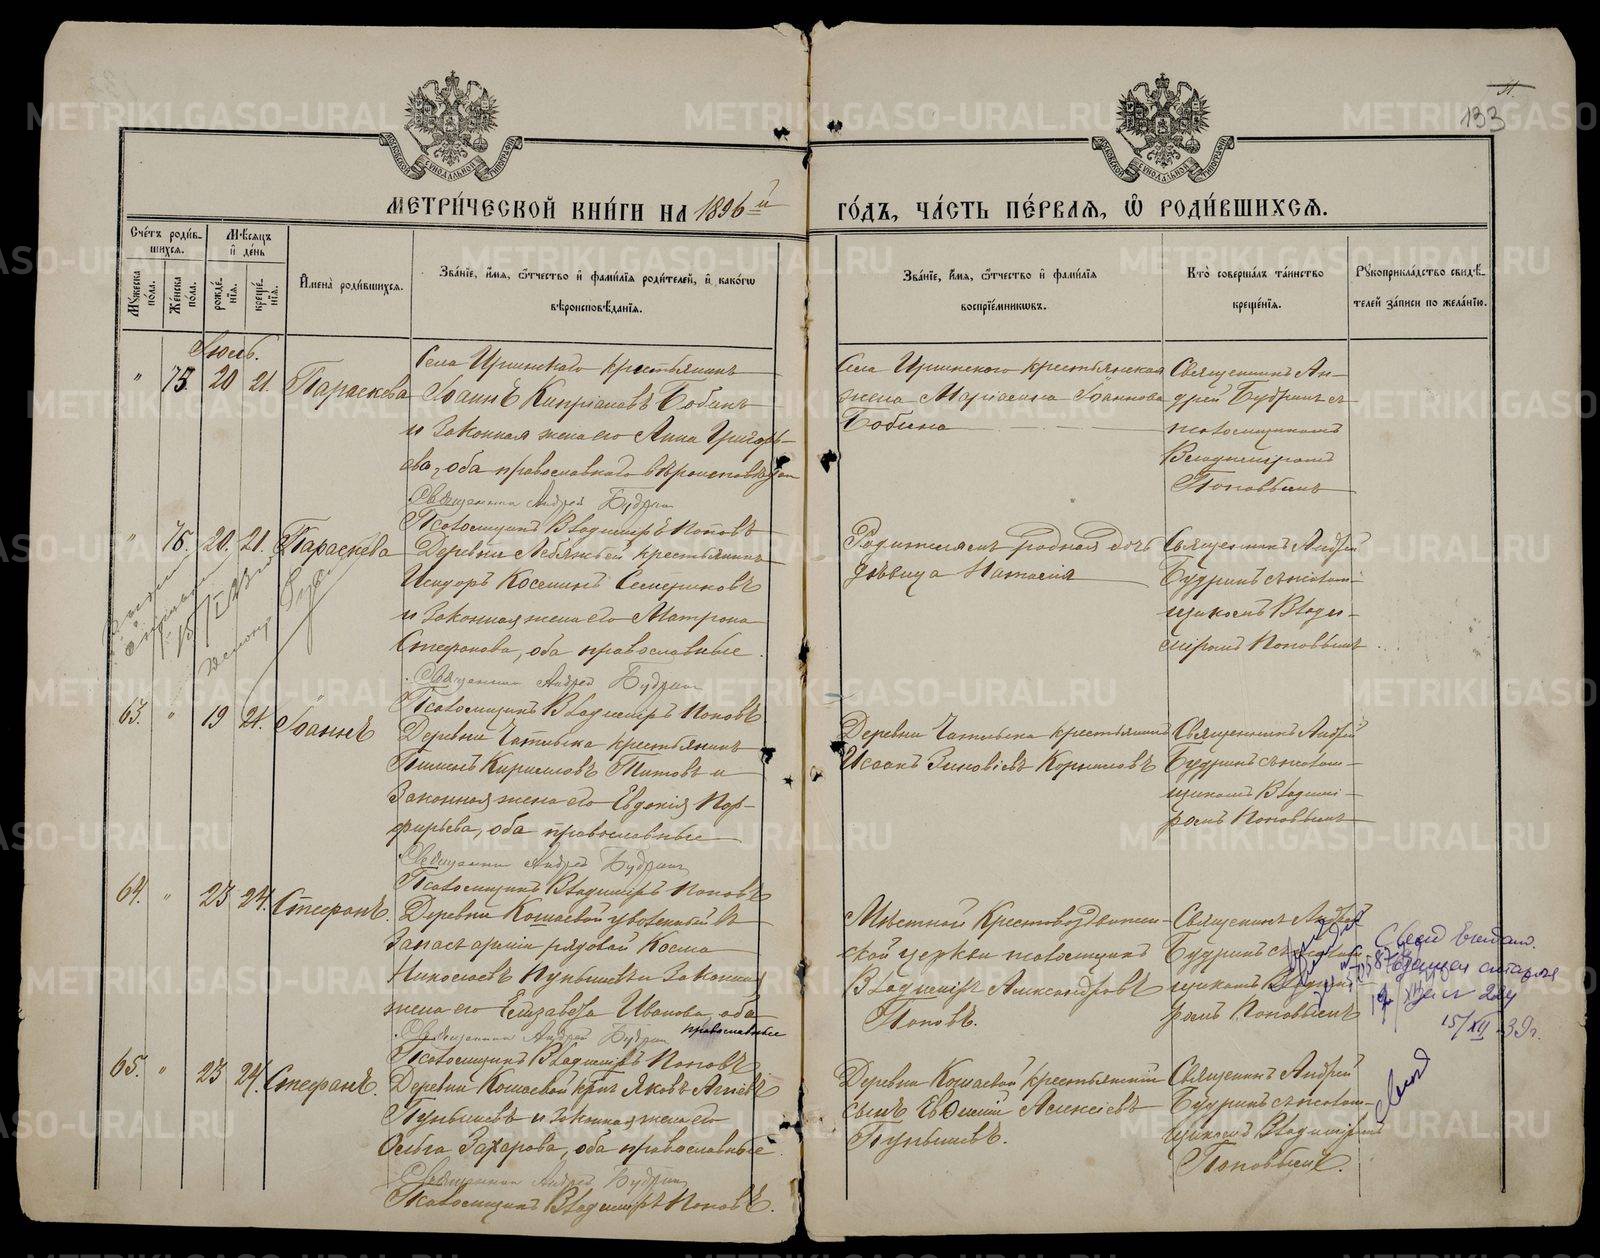 133
МЕТРИ́ЧЕСКОЙ КНИ́ГИ НА 1896й ГО́ДЪ, ЧА́СТЬ ПЕ́РВАѦ, Ѡ РОДИ́ВШИХСѦ.
Сче́тъ роди́вшихсѧ.
Мꙋжеска пола.
Же́нска по́ла.
Мѣ́сѧцъ и де́нь
рожде́нїѧ.
креще́нїѧ.
И҆мена̀ роди́вшихсѧ.
Зва́нїе, и҆́мѧ, ѻ҆́тчество и҆ фами́лїѧ роди́телей, и҆ како́гѡ
вѣроисповѣ́данїѧ.
Зва́нїе, и҆́мѧ, ѻ҆́тчество и҆ фами́лїѧ
воспрїе́мникѡвъ.
Кто̀ соверша́лъ та́инство
креще́нїѧ.
Рꙋкоприкла́дство свидѣ́телей за́писи по жела́нїю.
Іюль.
" 75. 20 21. Параскева
Села Иринскаго крестьянинъ
Іоаннъ Кипріановъ Бобинъ
и законная жена его Анна Григорьева, оба православнаго вѣроисповѣдан
Священникъ Андрей Будринъ
Псаломщикъ Владиміръ Поповъ
Села Иринского крестьянская
жена Маріанна Іоаннова
Бобина
Священникъ Андрей Будринъ съ
псаломщикомъ
Владиміромъ
Поповымъ
" 76. 20. 21. Параскева
Деревни Лебяжьей крестьянинъ
Исидоръ Косминъ Семериковъ
и законная жена его Матрона
Стефанова, оба православные.
Священникъ Андрей Будринъ
Псаломщикъ Владиміръ Поповъ
Родителямъ родная дочь
дѣвица Наталія
Священникъ Андрей
Будринъ съ псаломщикомъ Владиміромъ Поповымъ
63. " 19 21. Іоаннъ
Деревни Чатлыка крестьянинъ
Пименъ Кирилловъ Титовъ и
законная жена его Евдокія Порфирьева, оба православные
Священникъ Андрей Будринъ
Псаломщикъ Владиміръ Поповъ
Деревни Чатлыка крестьянинъ
Исаакъ Зиновіевъ Корниловъ
Священникъ Андрей
Будринъ съ псаломщикомъ Владиміромъ Поповымъ
64. " 23 24. Стефанъ.
Деревни Кошаевой уволенный въ
запасъ арміи рядовой Косма
Николаевъ Пунышевъ и законная
жена его Елизавета Иванова, оба
православные
Священникъ Андрей Будринъ
Псаломщикъ Владиміръ Поповъ
Мѣстной Крестовоздвиженской церкви псаломщикъ
Владиміръ Александровъ
Поповъ.
Священникъ Андрей
Будринъ съ псаломщикомъ Владиміромъ Поповымъ
15/XII-39г.
65. " 23 24. Стефанъ.
Деревни Кошаевой кр-нъ Яковъ Агіевъ
Пунышевъ и законная жена его
Ольга Захарова, оба православные.
Священникъ Андрей Будринъ
Псаломщикъ Владиміръ Поповъ.
Деревни Кошаевой крестьянскій
сынъ Евѳимій Алексіевъ
Пунышевъ.
Священникъ Андрей
Будринъ съ псаломщикомъ Владиміромъ
Поповымъ.
METRIKI.GASO-URAL.RU